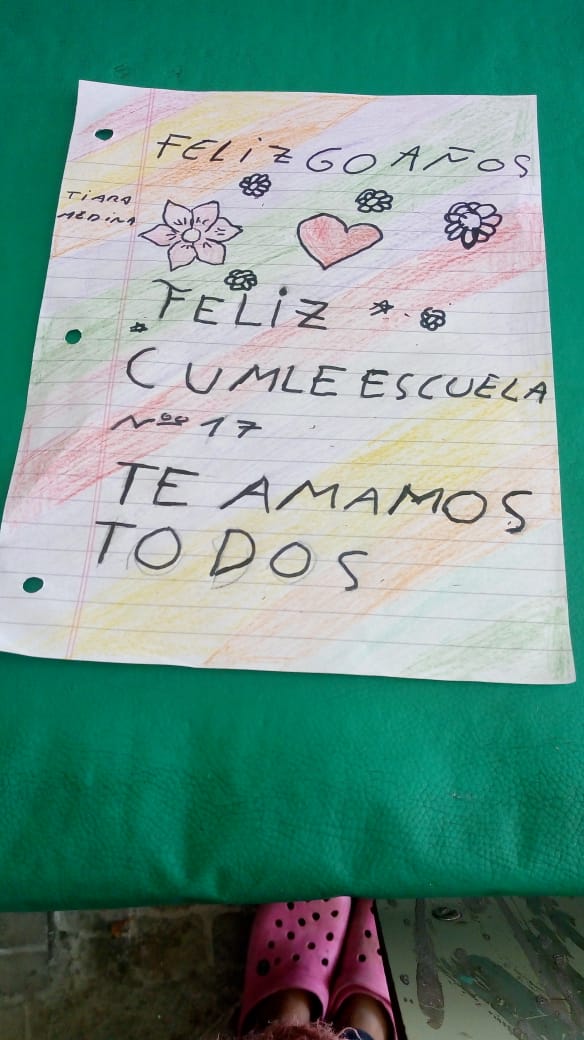 FELiZ 60 AÑOS
TiARA
MEDINA
FELiZ
CUMLE ESCUELA
Nºº 17
TE AMAMOS
TODOS